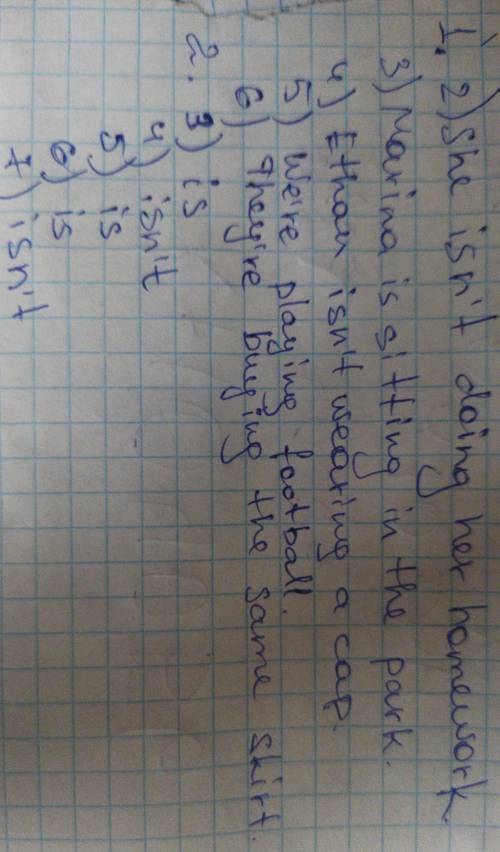 1. 2) She isn't doing her homework.
3) Marina is sitting in the park.
4) Ethan isn't wearing a cap.
5) We're playing football.
6) They're buying the same skirt.
2. 3) is
4) isn't
5) is
6) is
7) isn't